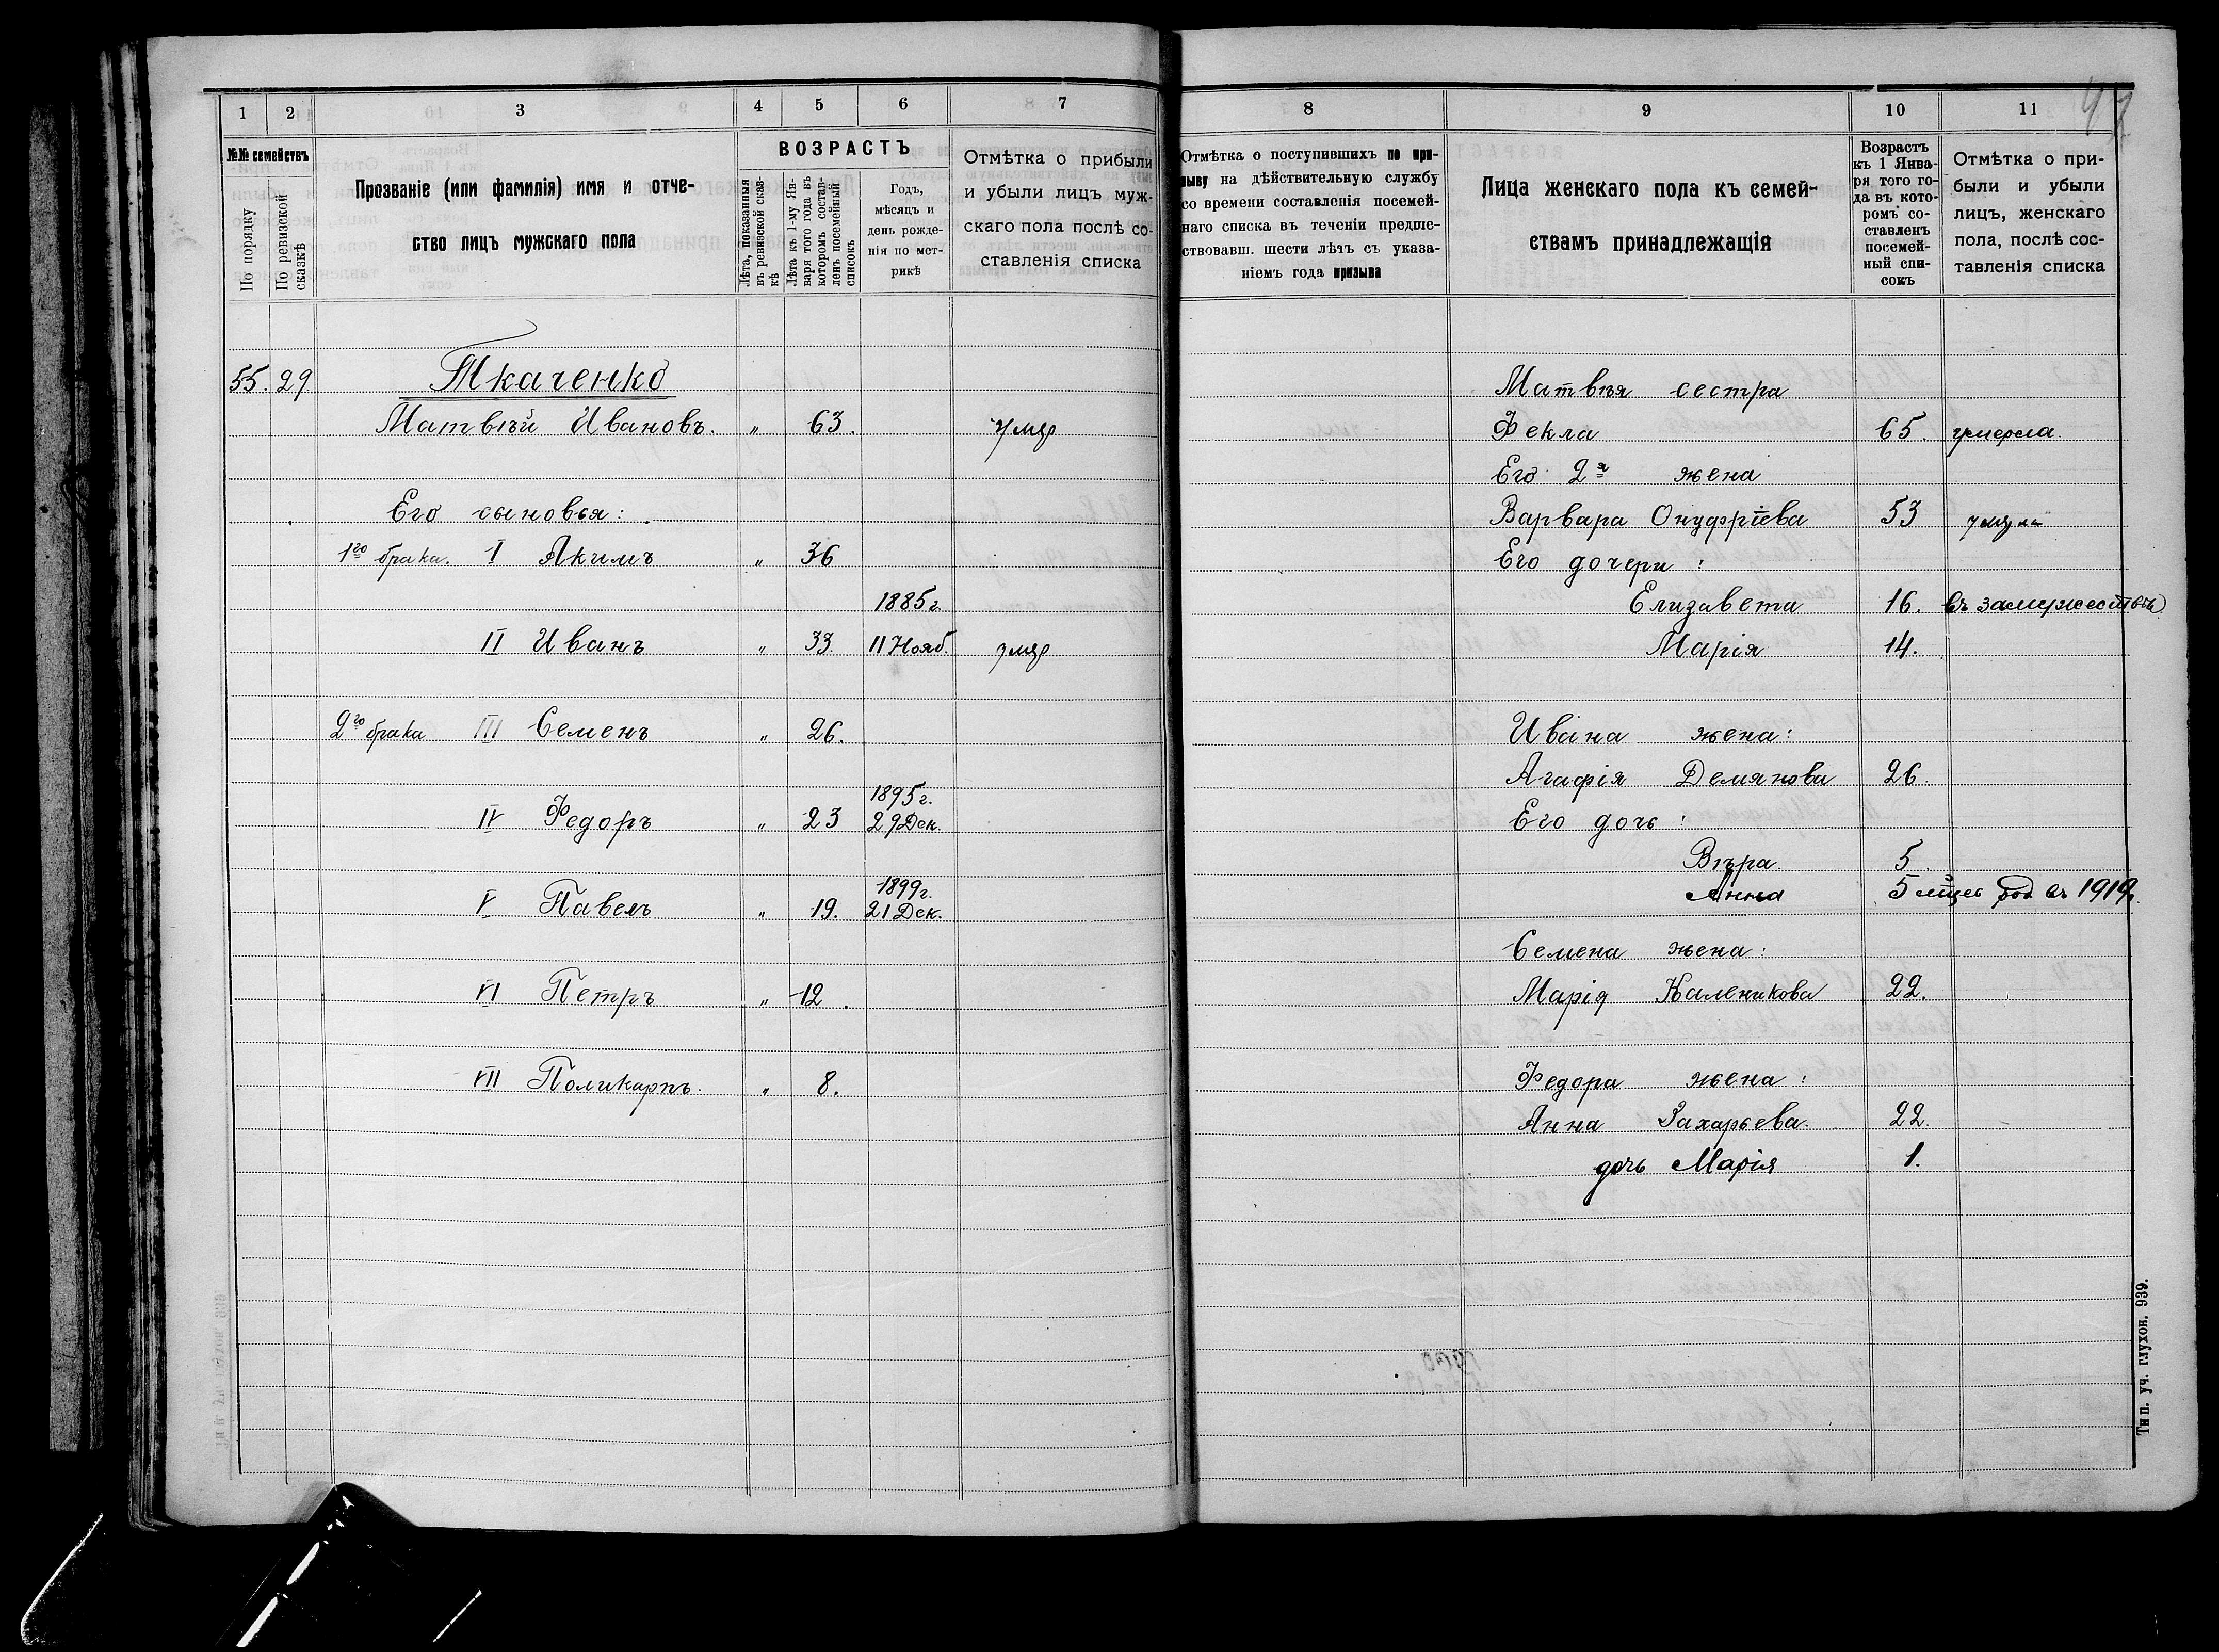 1 2 3 4 5 6 7
№№ семействъ
По порядку
По ревизской сказкѣ
Прозваніе (или фамилія) имя и отче-
ство лицъ мужскаго пола
ВОЗРАСТЪ
Лѣта, показанныя
въ ревизской сказ-
кѣ
Лѣта къ 1-му Ян-
варя того года въ
которомъ состав-
ленъ посемейный
списокъ
Годъ,
мѣсяцъ и
день рожде-
нія по мет-
рикѣ
Отмѣтка о прибыли
и убыли лицъ муж-
скаго пола послѣ со-
ставленія списка
55. 29. Ткаченко
Матвѣй Ивановъ. „ 63. умер
Его сыновья:
1го брака. I Акимъ „ 36
1885г.
II Иванъ „ 33 11 Нояб. умер
2го брака III Семенъ „ 26.
1895г.
IV Федоръ „ 23 29 Дек.
1899г.
V Павелъ „ 19. 21 Дек.
VI Петръ „ 12.
VII Поликарпъ. „ 8.
8 9 10 11
Отмѣтка о поступившихъ по при-
зыву на дѣйствительную службу
со времени составленія посемей-
наго списка въ теченіи предше-
ствовавш. шести лѣтъ съ указа-
ніемъ года призыва
Лица женскаго пола къ семей-
ствамъ принадлежащія
Возрастъ
къ 1 Янва-
ря того го-
да въ кото-
ромъ со-
ставленъ
посемей-
ный спи-
сокъ
Отмѣтка о при-
были и убыли
лицъ, женскаго
пола, послѣ сос-
тавленія списка
Матвѣя сестра
Фекла 65. умерла.
Его 2я жена
Варвара Онуфріева 53
Его дочери:
Елизавета 16. въ замужествѣ
Марія 14.
Ивана жена:
Агафія Демянова 26.
Его дочь:
Вѣра. 5.
Анна 5 мцев род. в 1919г.
Семена жена:
Марія Каленикова 22.
Федора жена:
Анна Захарьева. 22.
дочь Марія 1.
Тип. уч. глухон. 939.